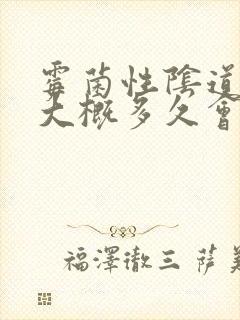 霉菌性陰道
大概多久會
福澤徹三 薩美